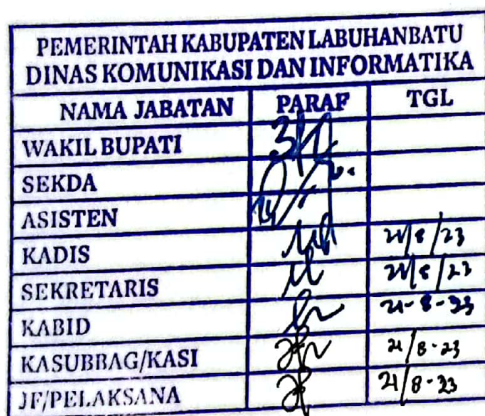 PEMERINTAH KABUPATEN LABUHANBATU
DINAS KOMUNIKASI DAN INFORMATIKA
NAMA JABATAN PARAF TGL
WAKIL BUPATI
SEKDA
ASISTEN
KADIS 21/8/23
SEKRETARIS 21/8/23
KABID 21-8-23
KASUBBAG/KASI 21/8-23
JF/PELAKSANA 21/8-23